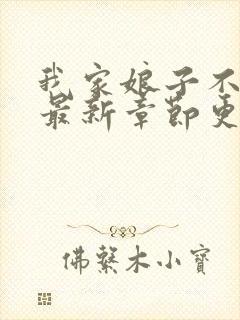 我家娘子不
最新章節更
佛繫木小寶